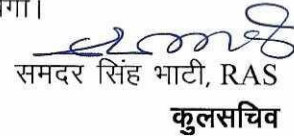 गा।
समदर सिंह भाटी, RAS
कुलसचिव